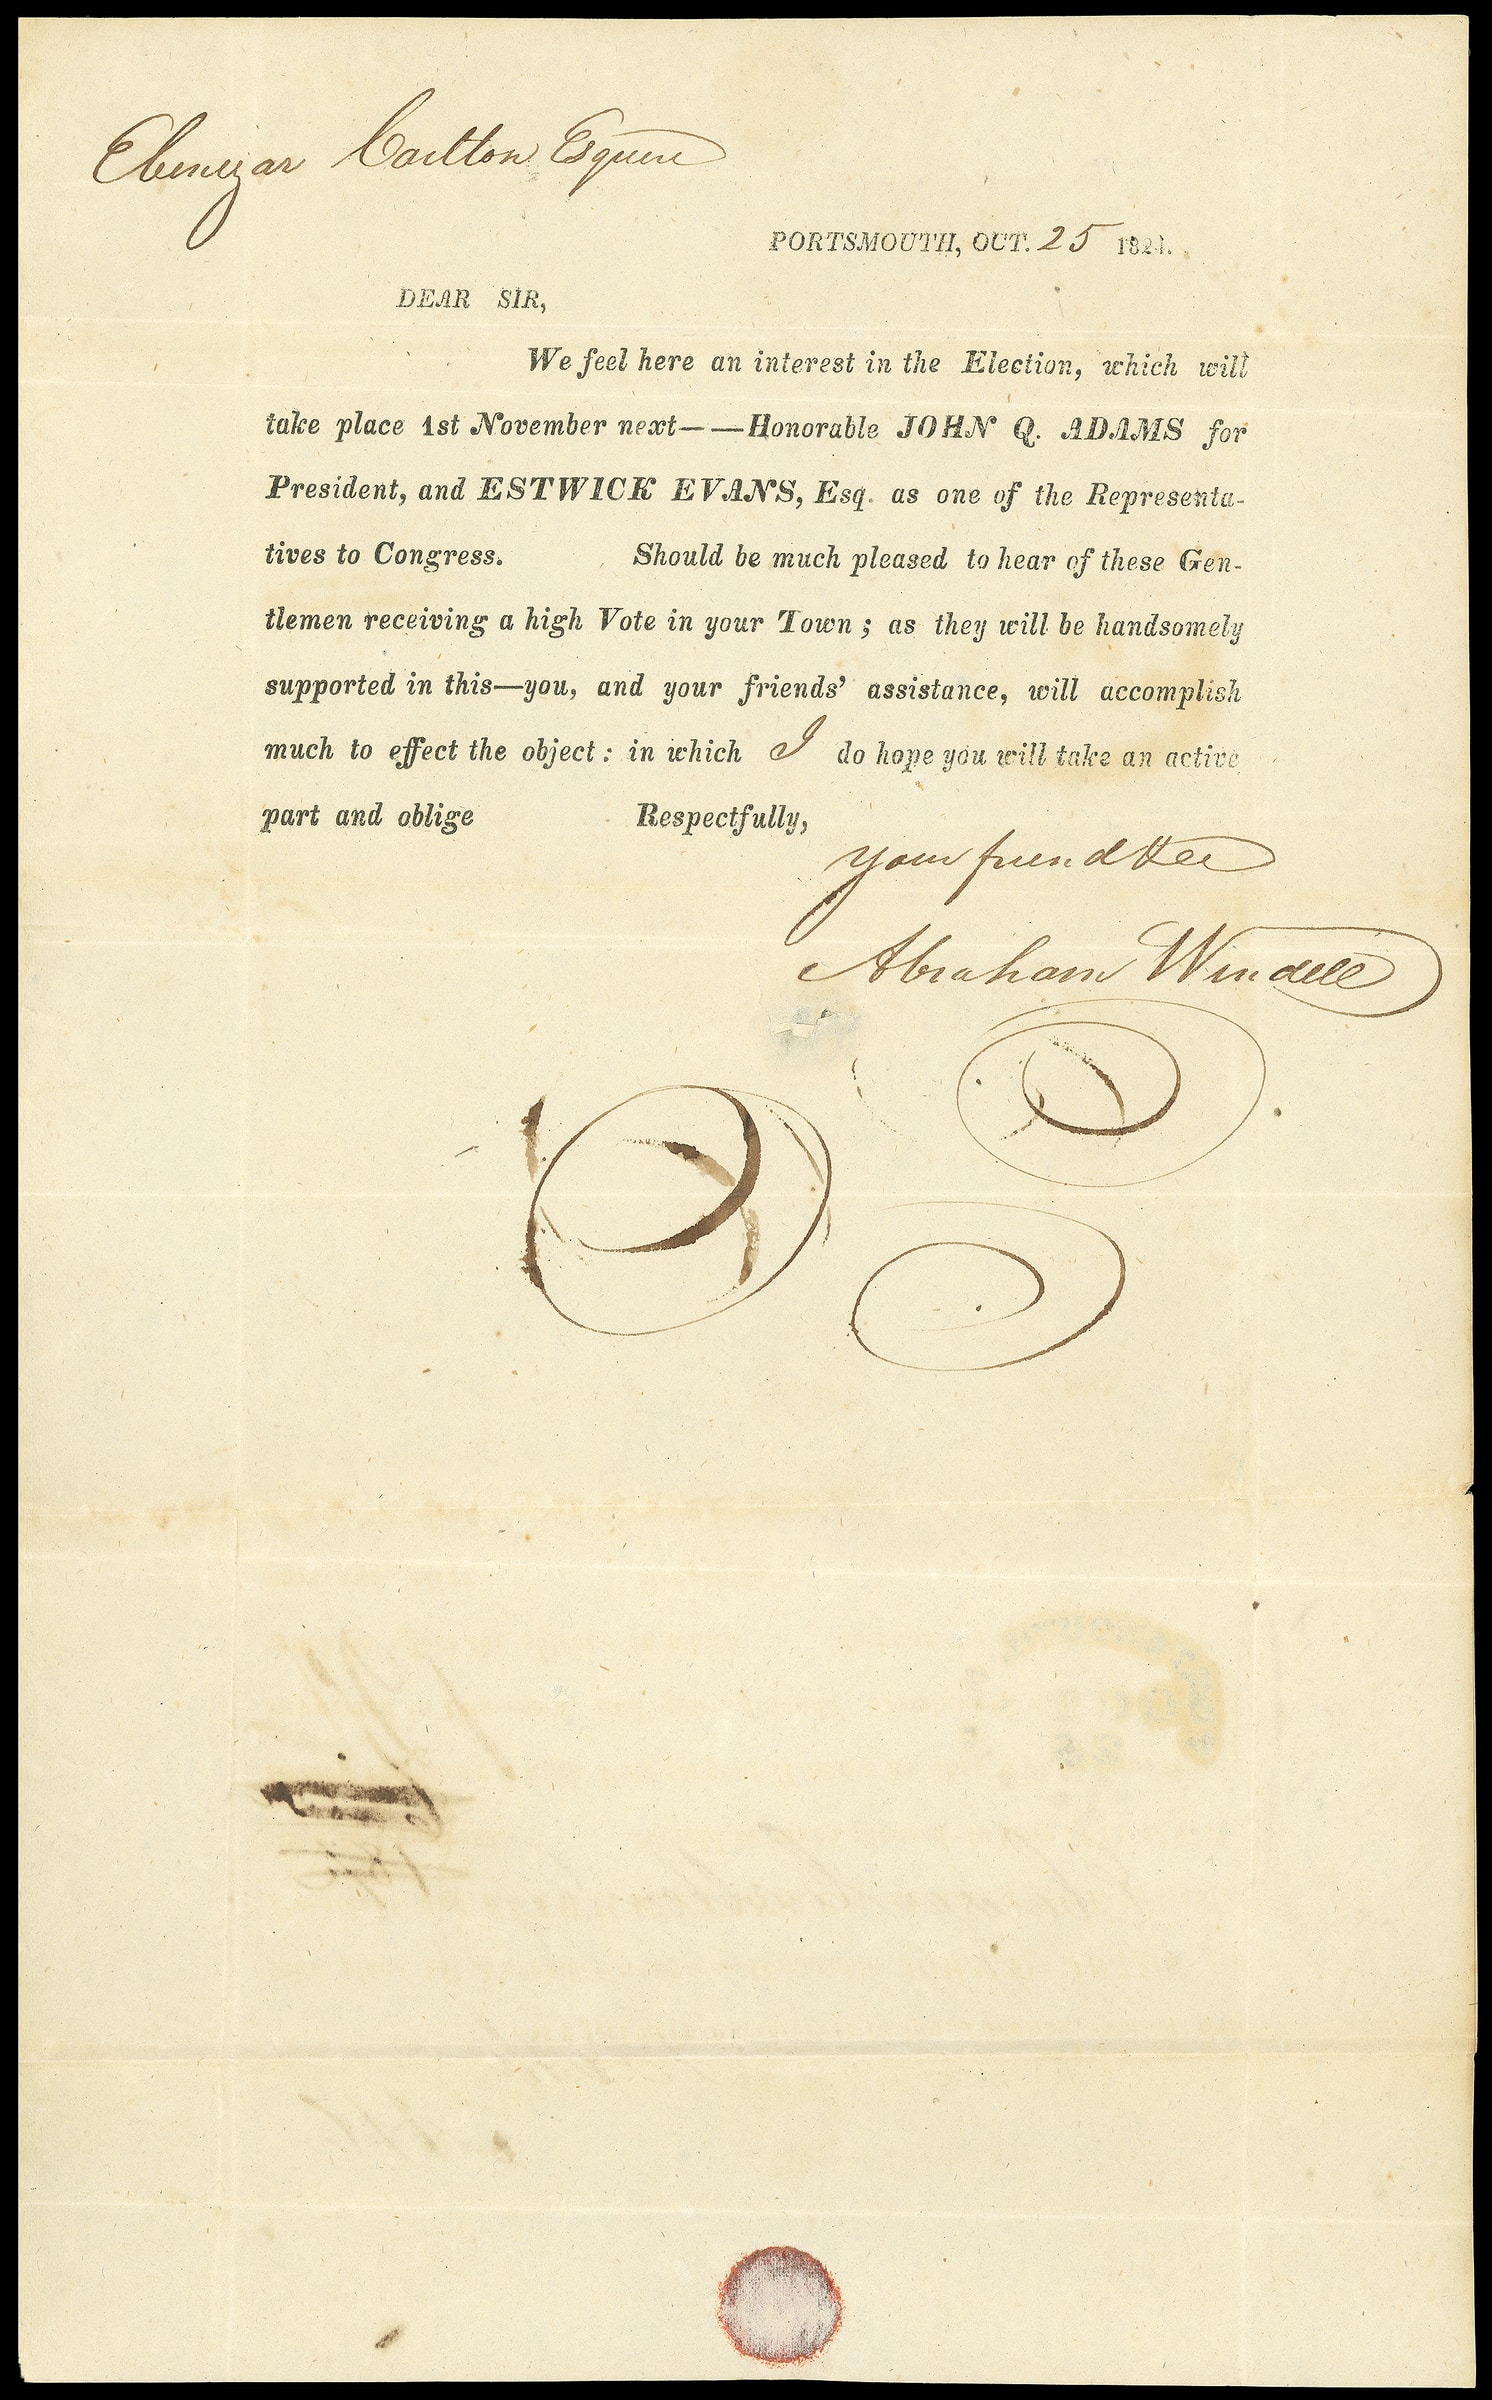 Ebenezar Carlton Esquire
PORTSMOUTH, OCT. 25 1824.
DEAR SIR,
We feel here an interest in the Election, which will
take place 1st November next— —Honorable JOHN Q. ADAMS for
President, and ESTWICK EVANS, Esq. as one of the Representa-
tives to Congress. Should be much pleased to hear of these Gen-
tlemen receiving a high Vote in your Town ; as they will be handsomely
supported in this—you, and your friends' assistance, will accomplish
much to effect the object : in which I do hope you will take an active
part and oblige Respectfully,
your friend
Abraham Wendell